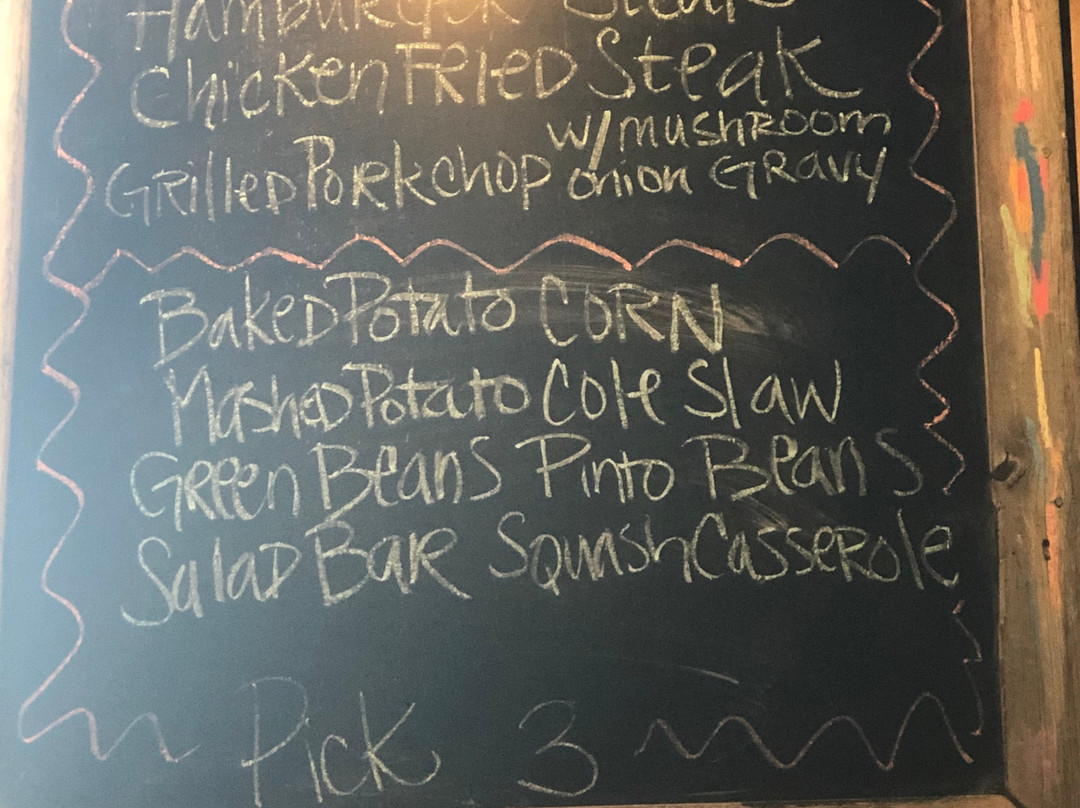 Hamburger Steak
Chicken Fried Steak
w/mushroom
Grilled Porkchop onion Gravy
Baked Potato Corn
Mashed Potato Cole Slaw
Green Beans Pinto Beans
Salad Bar Squash Casserole
Pick 3